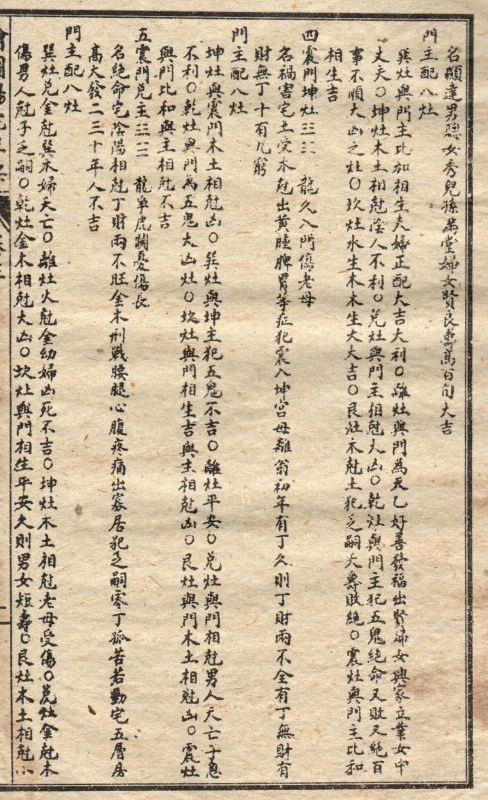 名顯達男聰女秀兒孫滿堂婦女賢良壽高百旬大吉
門主配八灶
巽灶與門主比和相生夫婦正配大吉大利〇離灶與門為天乙好善發福出賢婦女興家立業女中
丈夫〇坤灶木土相尅陰人不利〇兌灶與門主相尅大凶〇乾灶與門主犯五鬼絕命又敗又絕百
事不順大凶之灶〇坎灶水生木木生大大吉〇艮灶木尅土犯乏嗣大壽敗絕〇震灶與門主比和
相生吉
四震門坤灶☳☷ 龍入人門傷老母
名禍害宅土受木尅出黃腫脾胃等症犯震入坤宮母離翁初年有丁久則丁財兩不全有丁無財有
財無丁十有九窮
門主配八灶
坤灶與震門木土相尅凶〇巽灶與坤主犯五鬼不吉〇離灶平安〇兌灶與門相尅男人夭亡子息
不利〇乾灶與門為五鬼大凶灶〇坎灶與門相生吉與主相尅凶〇艮灶與門木土相尅凶〇震灶
與門比和與主相尅不吉
五震門兌主☳☱ 龍爭虎鬪憂傷長
名絕命宅陰陽相尅丁財兩不旺金木刑戰腰腿心腹疼痛出寡居犯乏嗣零丁孤苦若動宅五層房
高大發二三十年人不吉
門主配八灶
巽灶兌金尅巽木婦夭亡〇離灶火尅金幼婦凶死不吉〇坤灶木土相尅老母受傷〇兌灶金尅木
傷男人尅子乏嗣〇乾灶金木相尅大凶〇坎灶與門相生平安久則男女短壽〇艮灶木土相尅小